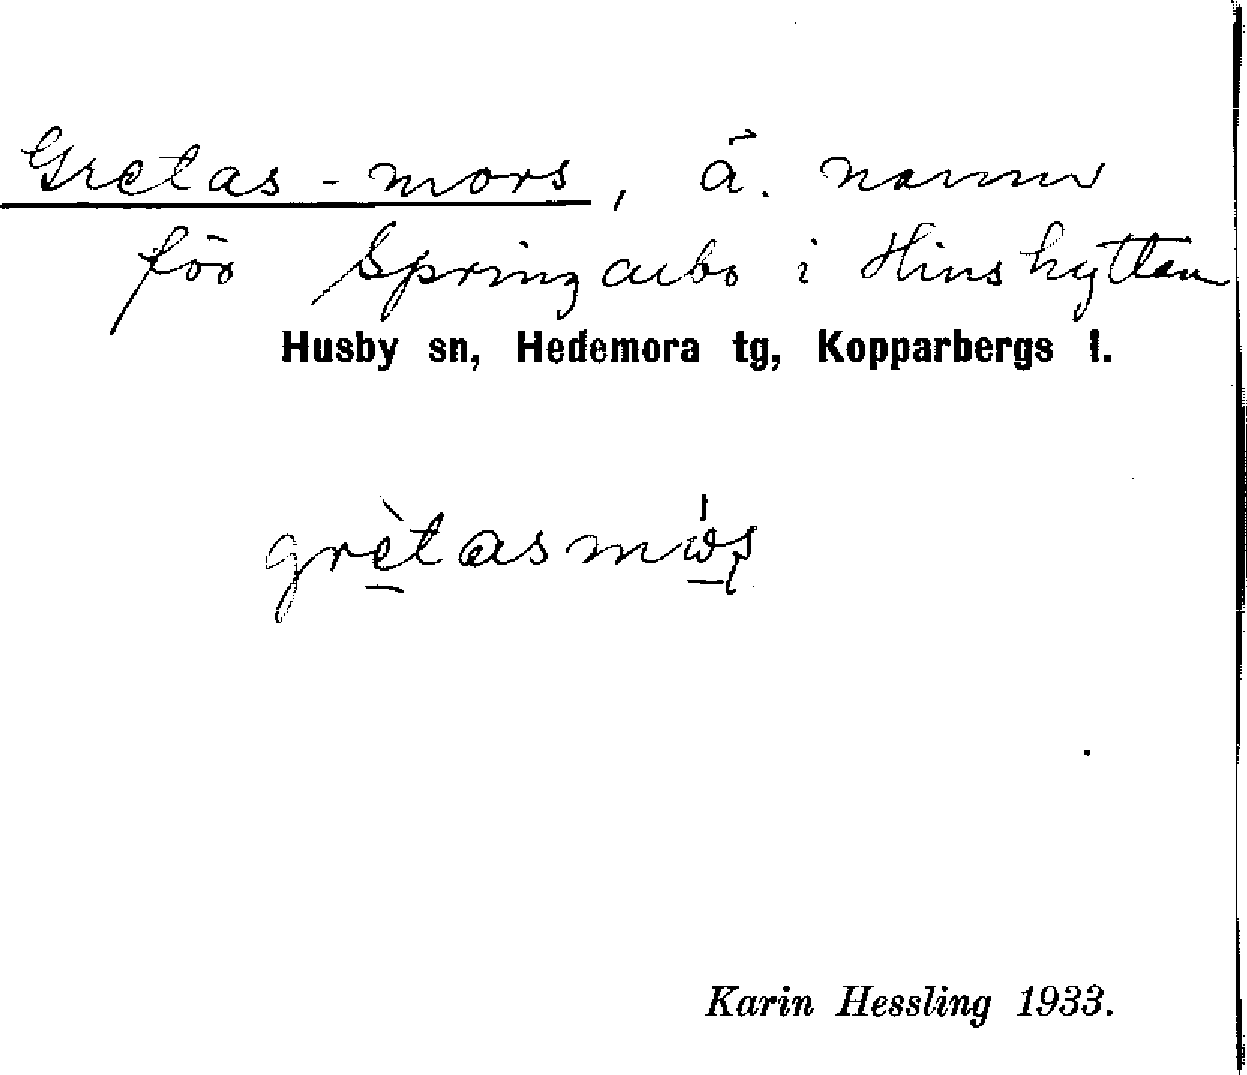 Gretas-mors, ä. namn
för Springarbo i Hinshyttan
Husby sn, Hedemora tg, Kopparbergs l.
Karin Hessling 1933.